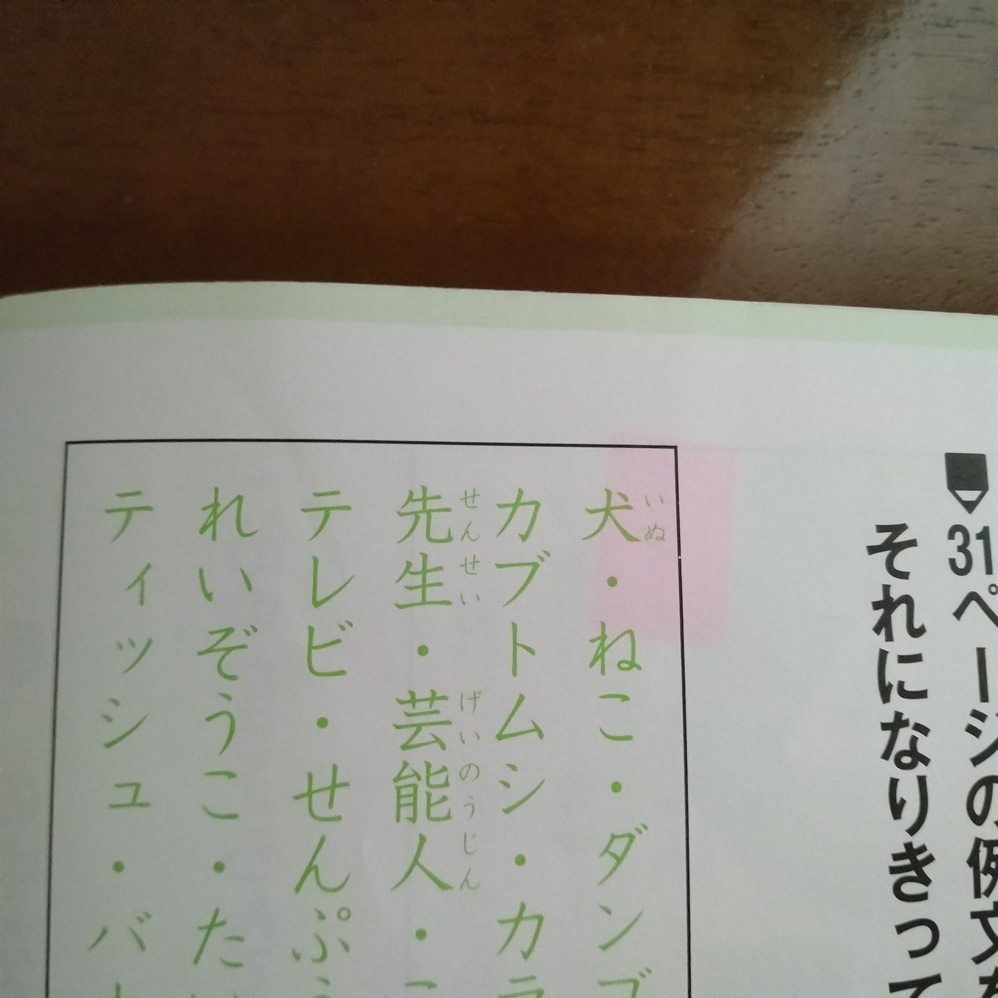 31ページの例文を
それになりきって
犬・ねこ・ダンゴ
いぬ
カブトムシ・カラ
先生・芸能人・こ
せんせい げいのうじん
テレビ・せんぷう
れいぞうこ・たい
ティッシュ・バト